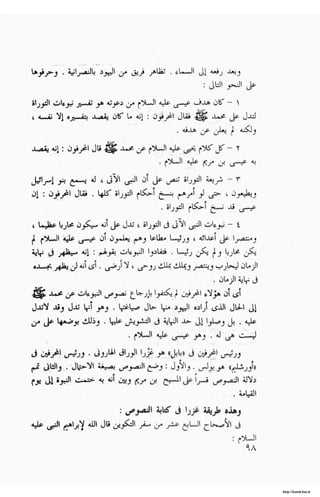 وبعد رفعه إلى السماء . تظاهر فريق من اليهود بالنصرانية . وحرفوها
على النحو التالى :
١ – كان هدف عيسى عليه السلام من دعوته هو تفسير نبوءات التوراة
لتدل على محمد ﷺ فقال المحرفون : إنه ما كان يقصد بتفسيره إلا نفسه ،
ولم يكن من هدفه .
٢ – كل كلام نبه به عيسى عليه السلام عن محمد ﷺ قال المحرفون : إنه يقصد
به عيسى بن مريم عليه السلام .
٣ – رفعت التوراة النص على أن النبى الآتى ، له يسمع بنو إسرائيل
ويطيعون ، حتى ولو أمرهم بنسخ أحكام التوراة كلها . فقال المحرفون : إن
عيسى قد نسخ أحكام التوراة .
٤ – نبوءات النبى الآتى فى التوراة ، تدل على أنه يكون محاربا عظيما ،
ومنتصرا على أعدائه ، ورئيسا مطاعا وهم يعلمون أن عيسى عليه السلام لم
يكن محاربا ولم يكن رئيسا . فقالوا النبوءات بقولهم : إنه سيظهر فى نهاية
الزمان ويحارب وينتصر ويملك ملكا روحيا ، ولا أرضيا . أى أنه سيظهر بجسده
فى نهاية الزمان .
أى أن هؤلاء المحرفين لم يفكروا بإرجاع نصوص النبوءات عن محمد ﷺ
إلى الحال الذى أراده اليهود من حال صياغتها . أى أنها تدل وقد لا تدل
عليه . بل وصلوا إلى الحد من النهاية فى التشويش عليها . وذلك بوضعها على من
ليست له . وهو عيسى عليه السلام .
ورئيس المحرفين فى «بابل» هو عزرا الوراق الهارونى . ورئيس المحرفين فى
«أورشليم» هو بولس . الأول : وضع بصيغة الاحتمال . والثانى تمم
دلالة النصوص على المسيح عيسى بن مريم وبين أنه صاحب ملكوت السماء إلى يوم
القيامة .
وهذه طريقة عزرا فى كتابة النصوص :
فى الأصحاح السابع عشر من سفر التكوين قال الله لإبراهيم النبى عليه
السلام :
٩٨
http://kotob.has.it